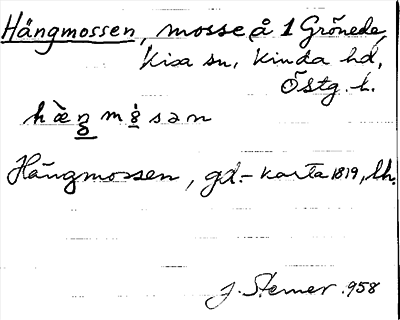 Hängmossen, mosse å 1 Grönede,
Kisa sn, Kinda hd,
Östg. l.
hæŋmɵ̀sən
Hängmossen, gd.- karta 1819, lh.
J. Sterner 1958